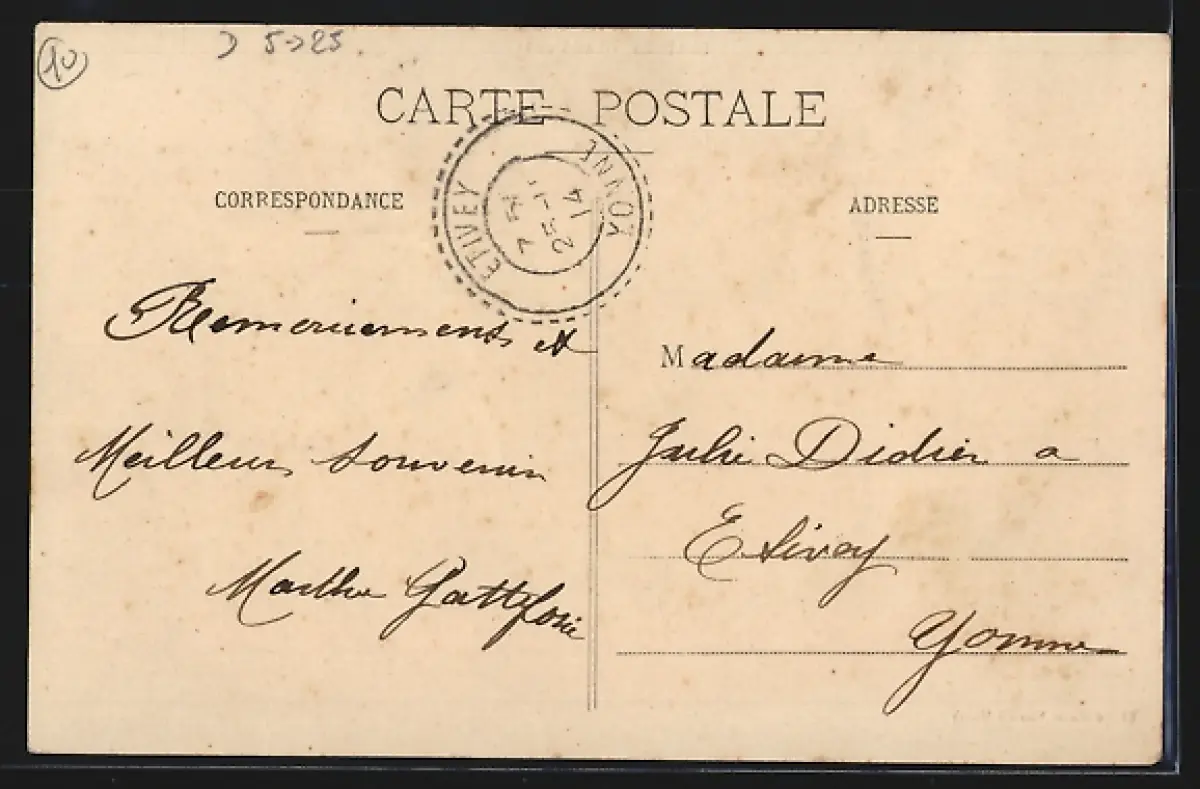 10
5-25
CARTE POSTALE
ETIVEY
YONNE
7
25
14
CORRESPONDANCE
ADRESSE
Remerciements et
Meilleurs souvenirs
Marthe
Madame
Julie Didier a
Etivey
Yonne